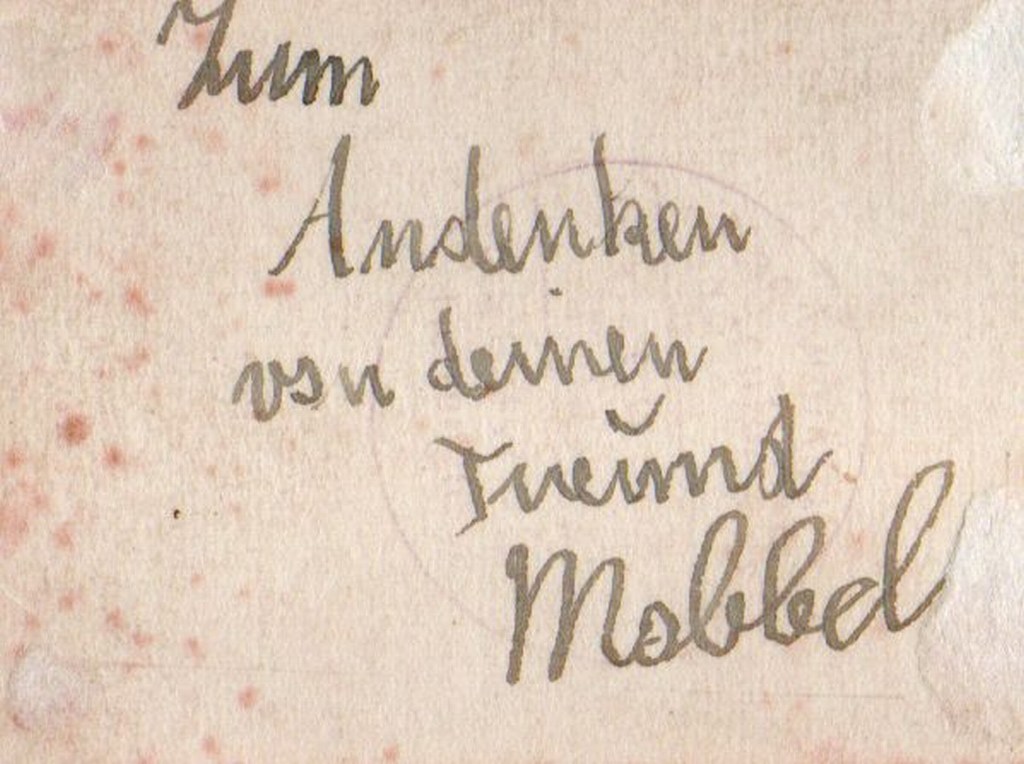 Zum
Andenken
von deinen
Freund
Mobbel